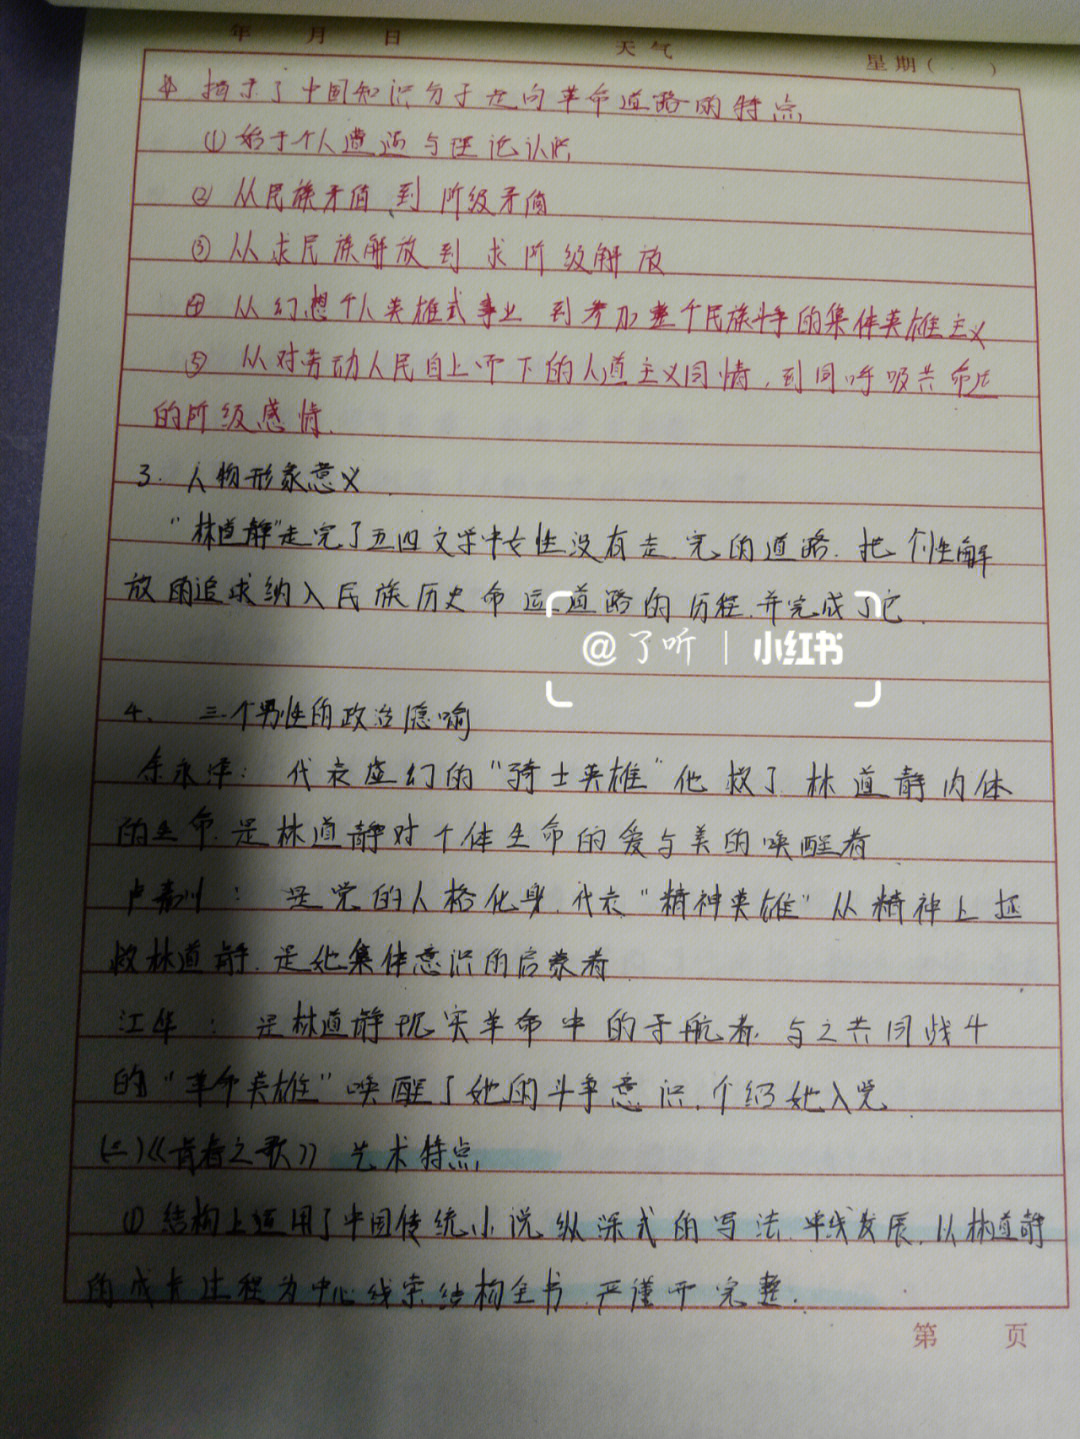 年 月 日 天气 星期( )
揭示了中国知识分子走向革命道路的特点
①始于个人遭遇与理论认识
②从民族矛盾到阶级矛盾
③从求民族解放到求阶级解放
④从幻想个人英雄式事业到参加整个民族斗争的集体英雄主义
⑤从对劳动人民自上而下的人道主义同情,到同呼吸共命运
的阶级感情.
3.人物形象意义
"林道静"走完了五四文学中女性没有走完的道路.把个性解
放的追求纳入民族历史命运道路的历程.并完成了它
@了听 | 小红书
4、三个男性的政治隐喻
余永泽:代表虚幻的"骑士英雄"他救了林道静肉体
的生命.是林道静对个体生命的爱与美的唤醒者
卢嘉川:是党的人格化身.代表"精神英雄"从精神上拯
救林道静.是她集体意识的启蒙者
江华:是林道静现实革命中的导航者.与之共同战斗
的"革命英雄"唤醒了她的斗争意识.介绍她入党
(二)《青春之歌》艺术特点
①结构上运用了中国传统小说纵深式的写法.单线发展.以林道静
的成长过程为中心线索结构全书.严谨而完整.
第 页